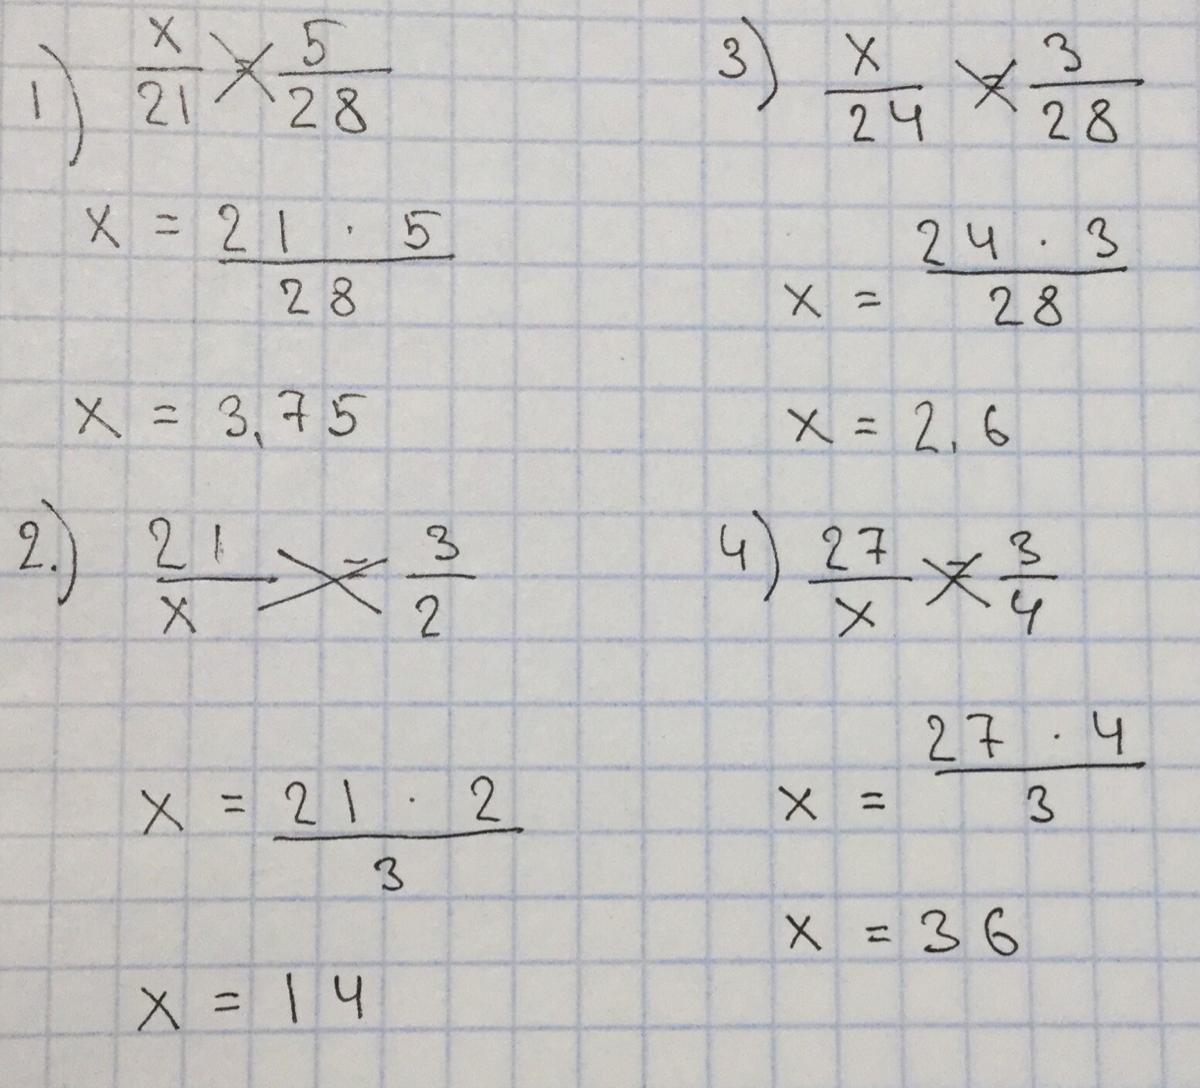 1) x/21 = 5/28
x = 21 · 5/28
x = 3,75
2.) 21/x = 3/2
x = 21 · 2/3
x = 14
3) x/24 = 3/28
x = 24 · 3/28
x = 2,6
4) 27/x = 3/4
x = 27 · 4/3
x = 36